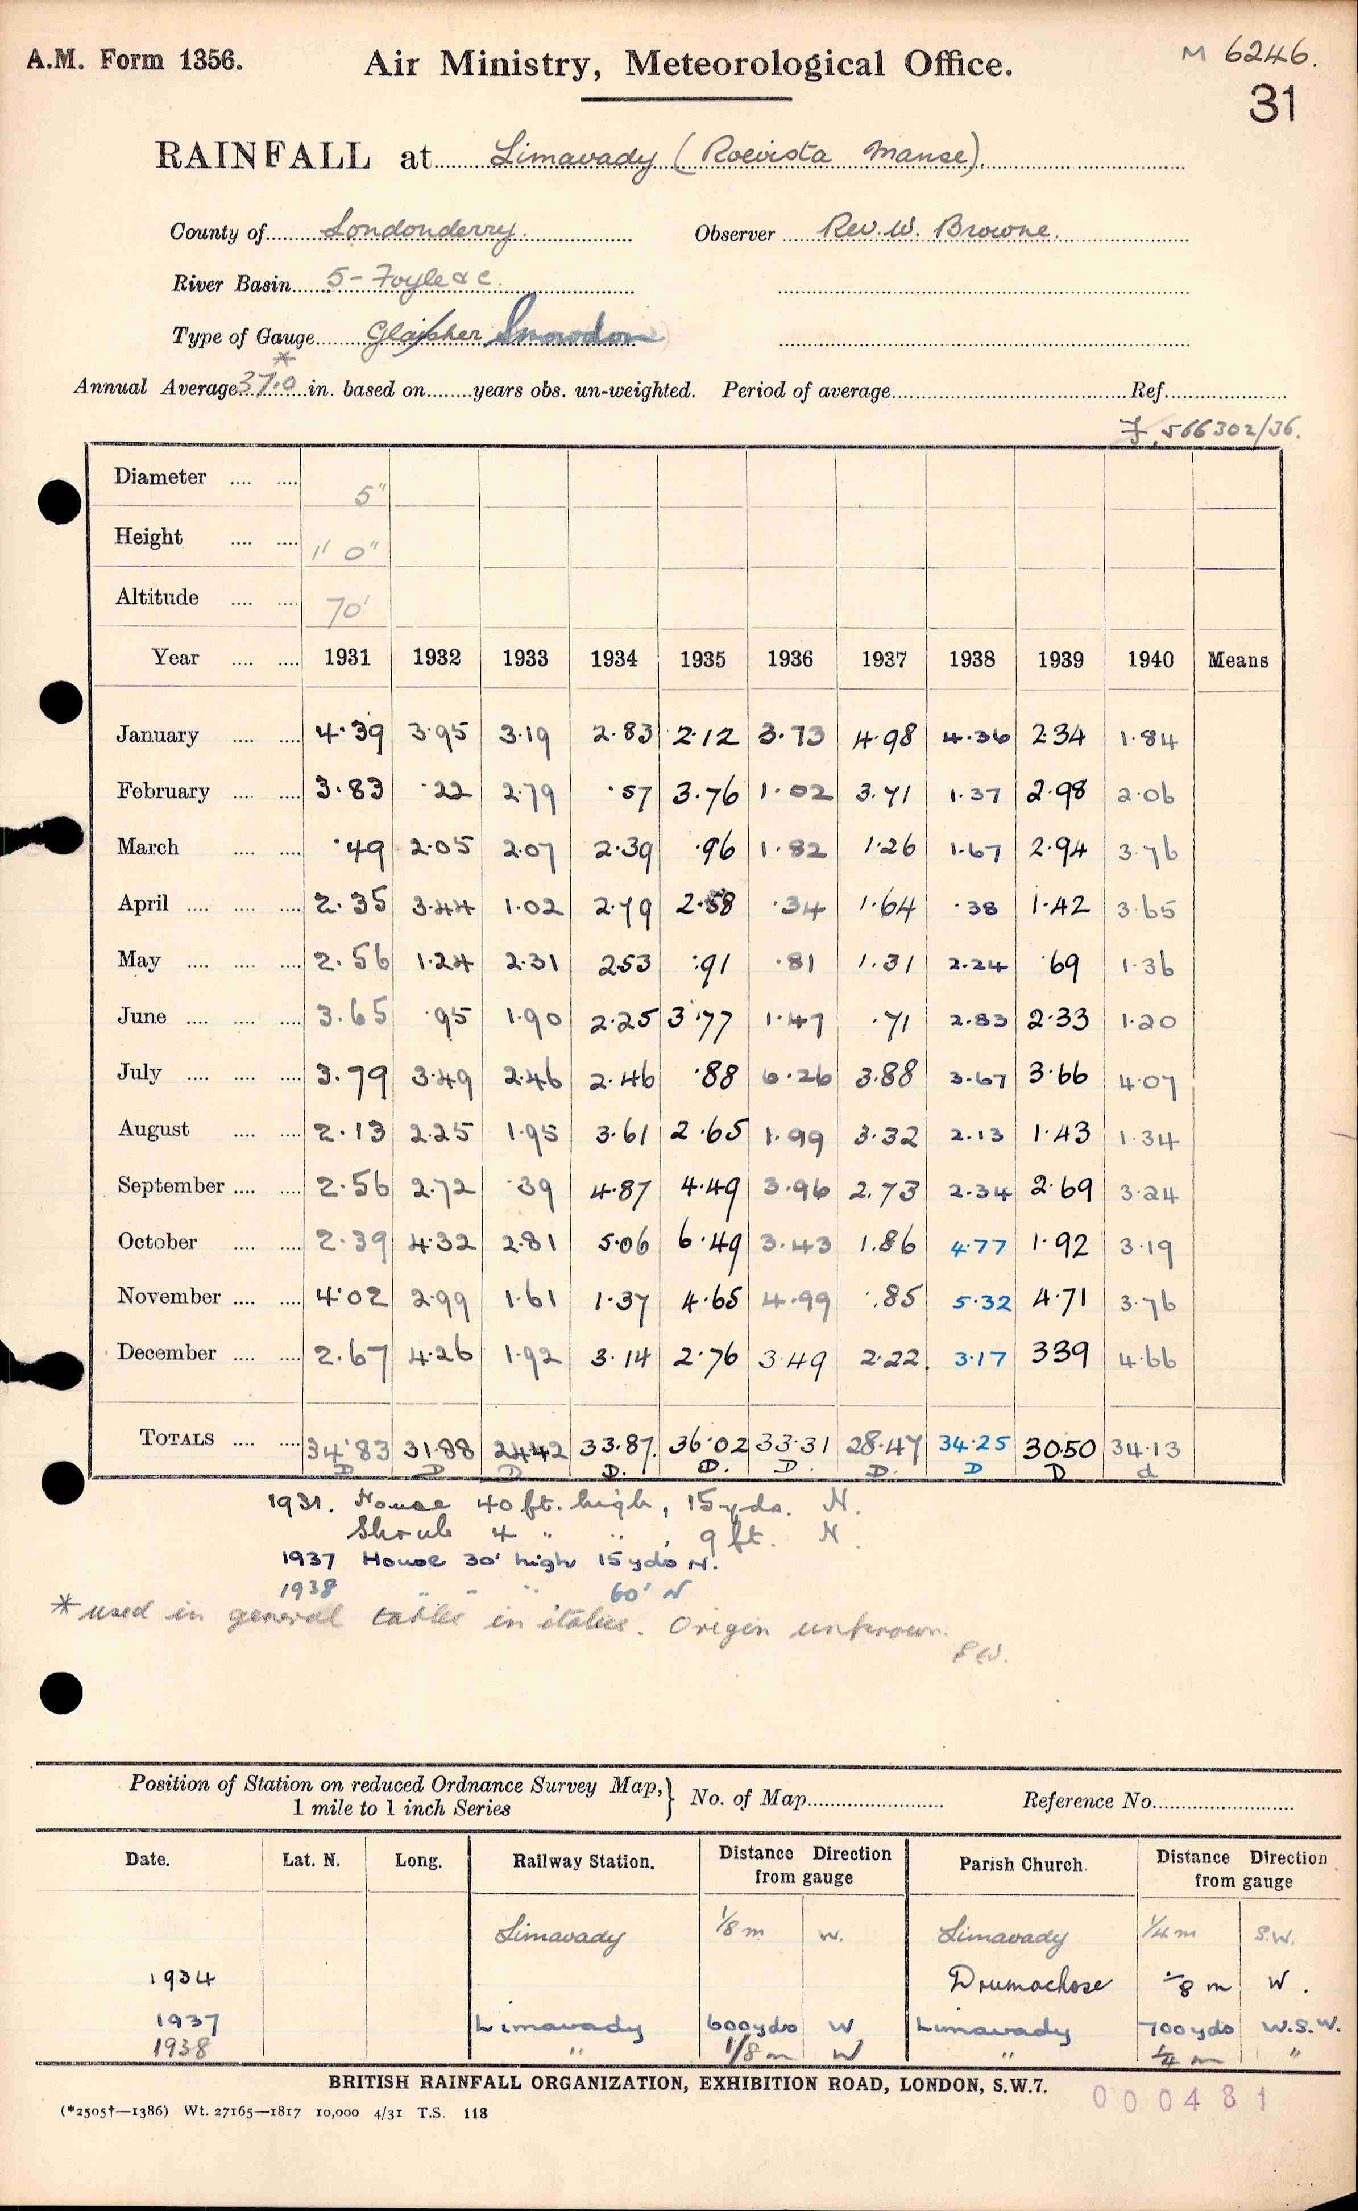 A.M. Form 1356. Air Ministry, Meteorological Office. M 6246.
31
RAINFALL at Limavady (Roevista Manse).
County of Londonderry. Observer Rev. W. Browne.
River Basin 5 - Foyle &c
Type of Gauge Glaisher Snowdon
Annual Average 37.0 * in. based on ........ years obs. un-weighted. Period of average ........ Ref. ........
566302/36.
Diameter .... .... 5"
Height .... .... 1' 0"
Altitude .... .... 70'
Year .... .... 1931 1932 1933 1934 1935 1936 1937 1938 1939 1940 Means
January .... .... 4·39 3·95 3·19 2·83 2·12 3·73 4·98 4·36 2·34 1·84
February .... .... 3·83 ·22 2·79 ·57 3·76 1·02 3·71 1·37 2·98 2·06
March .... .... ·49 2·05 2·07 2·39 ·96 1·82 1·26 1·67 2·94 3·76
April .... .... .... 2·35 3·44 1·02 2·79 2·58 ·34 1·64 ·38 1·42 3·65
May .... .... .... 2·56 1·24 2·31 2·53 ·91 ·81 1·31 2·24 ·69 1·36
June .... .... .... 3·65 ·95 1·90 2·25 3·77 1·47 ·71 2·83 2·33 1·20
July .... .... .... 3·79 3·49 2·46 2·46 ·88 6·26 3·88 3·67 3·66 4·07
August .... .... 2·13 2·25 1·95 3·61 2·65 1·99 3·32 2·13 1·43 1·34
September .... .... 2·56 2·72 ·39 4·87 4·49 3·96 2·73 2·34 2·69 3·24
October .... .... 2·39 4·32 2·81 5·06 6·49 3·43 1·86 4·77 1·92 3·19
November .... .... 4·02 2·99 1·61 1·37 4·65 4·99 ·85 5·32 4·71 3·76
December .... .... 2·67 4·26 1·92 3·14 2·76 3·49 2·22 3·17 339 4·66
TOTALS .... .... 34·83 31·88 24·42 33·87 36·02 33·31 28·47 34·25 30·50 34·13
D D D D. D. D. D. D D d
1931. House 40 ft. high, 15 yds. N.
Shrub 4 " ", 9 ft. N.
1937 House 30' high 15 yds N.
1938 " " " 60' N
* used in general tables in italics. Origin unknown.
Position of Station on reduced Ordnance Survey Map, 1 mile to 1 inch Series } No. of Map ........ Reference No. ........
Date. Lat. N. Long. Railway Station. Distance Direction from gauge Parish Church. Distance Direction from gauge
Limavady 1/8 m W. Limavady 1/4 m S.W.
1934 Drumachose 1/8 m W.
1937 Limavady 600 yds W Limavady 700 yds W.S.W.
1938 " 1/8 m W " 1/4 m "
BRITISH RAINFALL ORGANIZATION, EXHIBITION ROAD, LONDON, S.W.7.
000481
(*2505†—1386) Wt. 27165—1817 10,000 4/31 T.S. 118